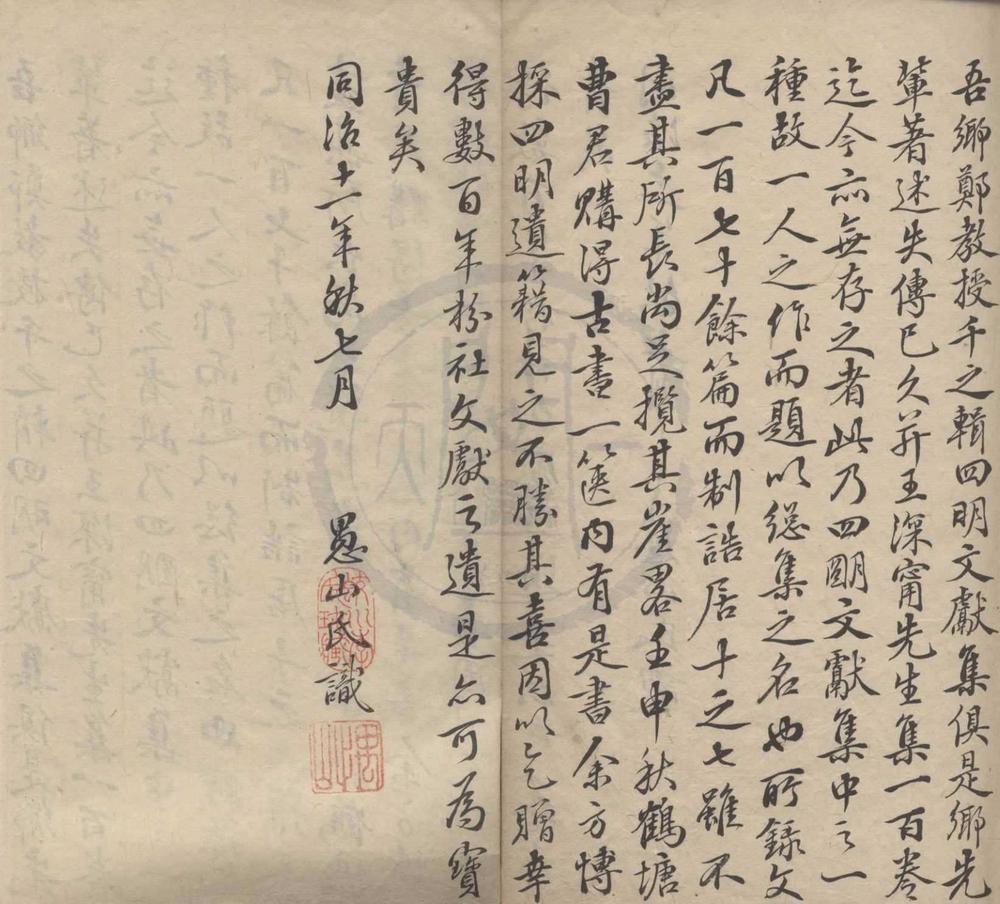 吾鄉鄭教授千之輯四明文獻集俱是鄉先
輩著述失傳已久并王深甯先生集一百卷
迄今亦無存之者此乃四明文獻集中之一
種故一人之作而題以總集之名也所錄文
凡一百七十餘篇而制誥居十之七雖不
盡其所長尚足攬其崖畧壬申秋鶴塘
曹君購得古書一篋內有是書余方博
採四明遺籍見之不勝其喜因以乞贈幸
得數百年枌社文獻之遺是亦可為寶
貴矣
同治十一年秋七月　愚山氏識